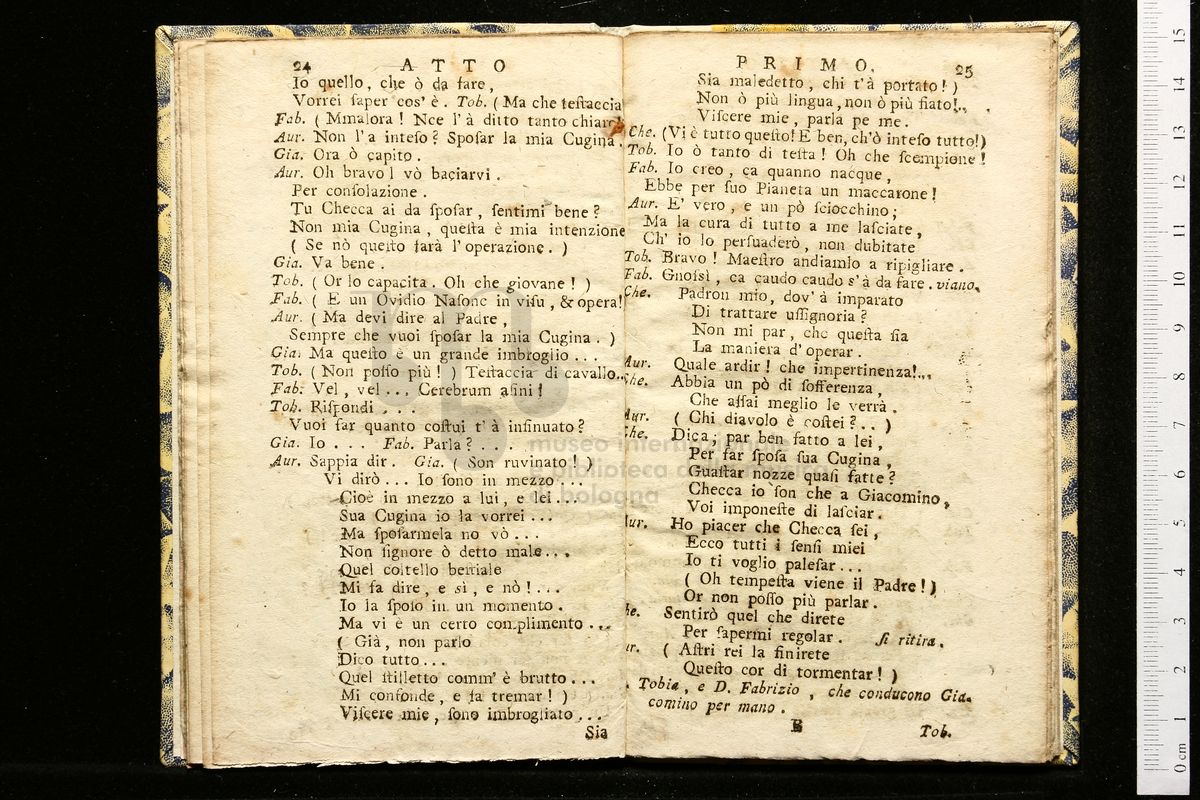 24 ATTO
Io quello, che ò da fare,
Vorrei ſaper cos' è. Tob. (Ma che teſtaccia
Fab. (Mmalora! Nce l'à ditto tanto chiaro
Aur. Non l'a inteſo? Spoſar la mia Cugina.
Gia. Ora ò capito.
Aur. Oh bravo! vò baciarvi.
Per conſolazione.
Tu Checca ai da ſpoſar, ſentimi bene?
Non mia Cugina, queſta è mia intenzione
( Se nò queſto farà l'operazione. )
Gia. Va bene.
Tob. ( Or lo capacita. Oh che giovane! )
Fab. ( E un Ovidio Naſone in viſu, & opera!
Aur. ( Ma devi dire al Padre,
Sempre che vuoi ſpoſar la mia Cugina. )
Gia. Ma queſto è un grande imbroglio...
Tob. ( Non poſſo più! ) Teſtaccia di cavallo..
Fab. Vel, vel... Cerebrum aſini!
Tob. Riſpondi...
Vuoi far quanto coſtui t'à inſinuato?
Gia. Io.... Fab. Parla?....
Aur. Sappia dir. Gia. ( Son ruvinato! )
Vi dirò... Io ſono in mezzo...
Cioè in mezzo a lui, e lei...
Sua Cugina io la vorrei...
Ma ſpoſarmela no vò...
Non ſignore ò detto male...
Quel coltello beſtiale
Mi fa dire, e sì, e nò!...
Io la ſpoſo in un momento.
Ma vi è un certo complimento...
( Già, non parlo
Dico tutto...
Quel ſtilletto comm' è brutto...
Mi confonde, e fa tremar! )
Viſcere mie, ſono imbrogliato...
Sia
PRIMO. 25
Sia maledetto, chi t'à portato! )
Non ò più lingua, non ò più fiato!..
Viſcere mie, parla pe me.
Che. (Vi è tutto queſto! E ben, ch'ò inteſo tutto!)
Tob. Io ò tanto di teſta! Oh che ſcempione!
Fab. Io creo, ca quanno nacque,
Ebbe per ſuo Pianeta un maccarone!
Aur. E' vero, e un pò ſciocchino;
Ma la cura di tutto a me laſciate,
Ch' io lo perſuaderò, non dubitate
Tob. Bravo! Maeſtro andiamlo a ripigliare.
Fab. Gnoſsì ca caudo caudo s'à da fare. viano.
Che. Padron mio, dov' à imparato
Di trattare uſſignoria?
Non mi par, che queſta ſia
La maniera d'operar.
Aur. Quale ardir! che impertinenza!...
Che. Abbia un pò di ſofferenza,
Che aſſai meglio le verrà.
Aur. ( Chi diavolo è coſtei?..)
Che. Dica, par ben fatto a lei,
Per far ſpoſa ſua Cugina,
Guaſtar nozze quaſi fatte?
Checca io ſon che a Giacomino,
Voi imponeſte di laſciar.
Aur. Ho piacer che Checca ſei,
Ecco tutti i ſenſi miei
Io ti voglio paleſar...
( Oh tempeſta viene il Padre!)
Or non poſſo più parlar.
he. Sentirò quel che direte
Per ſapermi regolar. ſi ritira.
ur. ( Aſtri rei la finirete
Queſto cor di tormentar! )
Tobia, e D. Fabrizio, che conducono Gia-
comino per mano.
B Tob.